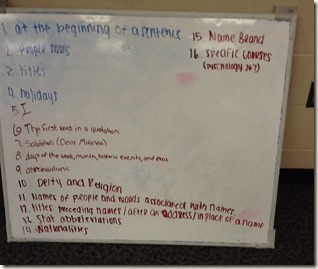 1. at the beginning of a sentence
2. people nouns
3. titles
4. holidays
5. I
6. The first word in a quotation
7. Salutation (Dear Milanea)
8. days of the week, month, historic events, and eras
9. abbreviations
10. Deity and Religion
11. Names of people and words associated with names.
12. titles preceding names / after an address / in place of a name
13. Stat abbreviations
14. Nationalities
15. Name Brand
16. Specific courses
(Psychology 267)